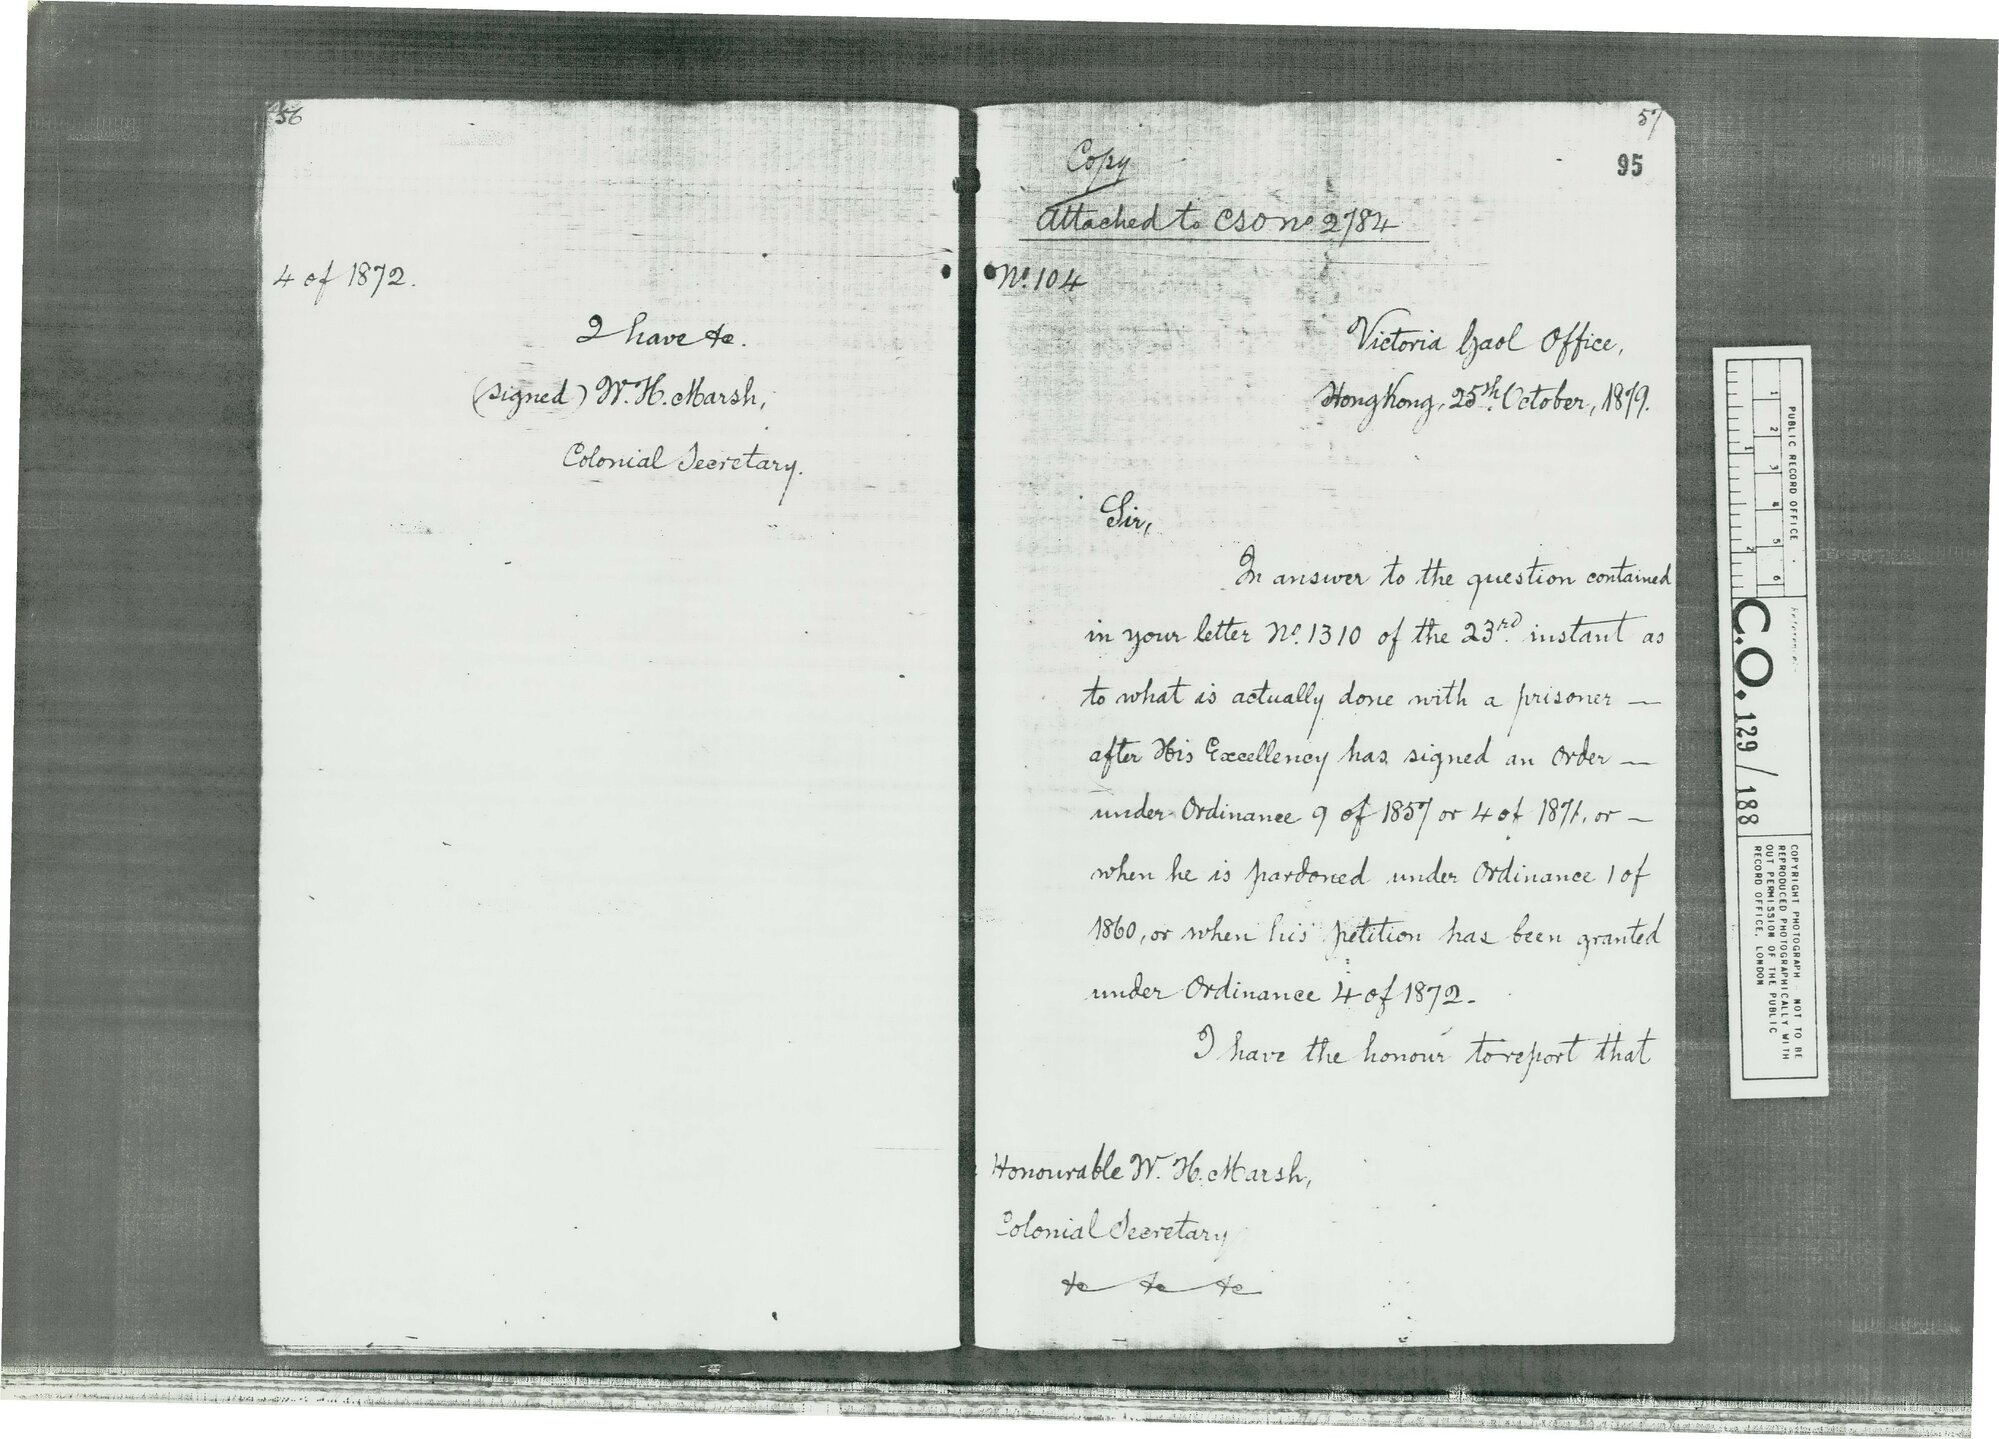 56
4 of 1872.
I have &c.
(signed) W. H. Marsh,
Colonial Secretary.
57
95
Copy
Attached to CSO No 2784
No. 104
Victoria Gaol Office,
HongKong, 25th October, 1879.
Sir,
In answer to the question contained
in your letter No. 1310 of the 23rd instant as
to what is actually done with a prisoner —
after His Excellency has signed an Order —
under Ordinance 9 of 1857 or 4 of 1871, or —
when he is pardoned under Ordinance 1 of
1860, or when his petition has been granted
under Ordinance 4 of 1872.
I have the honour to report that
Honourable W. H. Marsh,
Colonial Secretary
&c &c &c
PUBLIC RECORD OFFICE
1 2 3 4 5 6
1 2
Reference:-
C.O. 129/188
COPYRIGHT PHOTOGRAPH - NOT TO BE
REPRODUCED PHOTOGRAPHICALLY WITH
OUT PERMISSION OF THE PUBLIC
RECORD OFFICE, LONDON